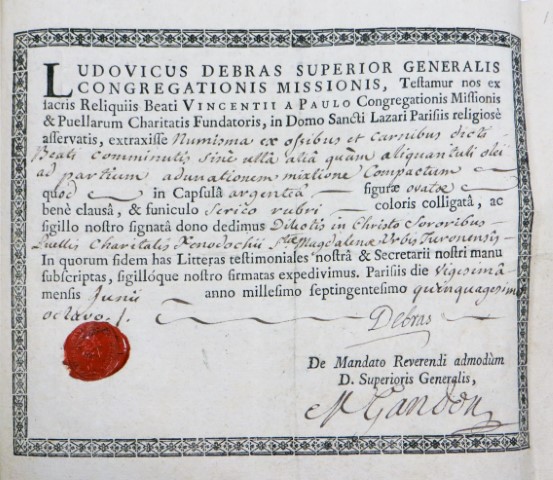 LUDOVICUS DEBRAS SUPERIOR GENERALIS
CONGREGATIONIS MISSIONIS, Testamur nos ex
sacris Reliquiis Beati VINCENTII A PAULO Congregationis Missionis
& Puellarum Charitatis Fundatoris, in Domo Sancti Lazari Parisiis religiosè
asservatis, extraxisse Numisma ex ossibus et carnibus dicti
Beati comminutis sine ullâ aliâ quàm aliquantuli olei
ad partium adunationem mixtione compactum
quod in Capsulâ argenteâ figuræ ovatæ
benè clausâ, & funiculo serico rubri coloris colligatâ, ac
sigillo nostro signatâ dono dedimus Dilectis in Christo Sororibus
Puellis Charitatis Xenodochii Stæ Magdalenæ Urbis Turonensis
In quorum fidem has Litteras testimoniales nostrâ & Secretarii nostri manu
subscriptas, sigillóque nostro firmatas expedivimus. Parisiis die Vigesimâ
mensis Junii anno millesimo septingentesimo quinquagesimo
octavo.
Debras
De Mandato Reverendi admodùm
D. Superioris Generalis,